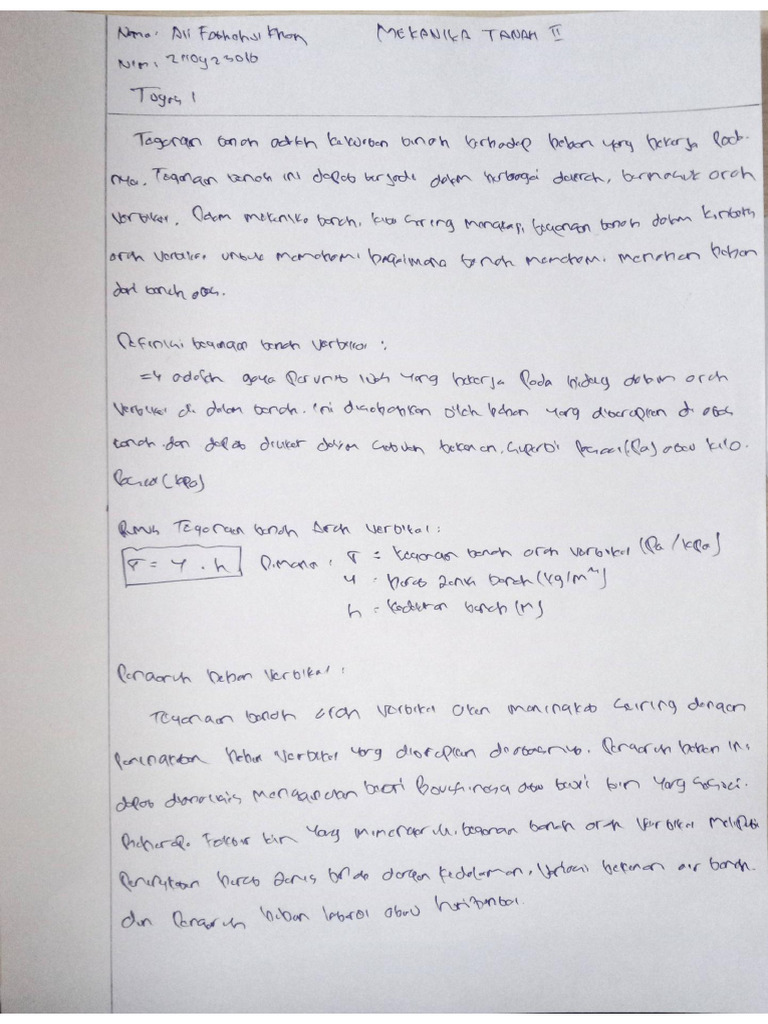 Nama: Ali Fathahul Khan MEKANIKA TANAH II
Nim: 2110423016
Tugas 1
Tegangan tanah adalah kekuatan tanah terhadap beban yang bekerja Pada
nya. Tegangan tanah ini dapat terjadi dalam berbagai daerah, termasuk arah
vertikal. Dalam mekanika tanah, kita sering mengkaji tegangan tanah dalam konteks
arah vertikal untuk memahami bagaimana tanah memahami menahan beban
dari tanah atas.
Definisi tegangan tanah vertikal :
=> adalah gaya Perunit luas yang bekerja Pada bidang dalam arah
vertikal di dalam tanah. ini disebabkan oleh beban yang diterapkan di atas
tanah dan dapat diukur dalam satuan tekanan, seperti Pascal (Pa) atau kilo
Pascal (kPa)
Rumus Tegangan tanah Arah vertikal :
σ = γ . h Dimana : σ = tegangan tanah arah vertikal (Pa / kPa)
γ = berat jenis tanah (kg/m³)
h = kedalaman tanah (m)
Pengaruh beban vertikal :
Tegangan tanah arah vertikal akan meningkat seiring dengan
Peningkatan beban vertikal yang diterapkan diatasnya. Pengaruh beban ini
dapat dianalisis menggunakan teori Boussinesq atau teori lain yang sesuai.
Beberapa Faktor lain yang mempengaruhi tegangan tanah arah vertikal meliputi
Peningkatan berat jenis tanah dengan kedalaman, variasi tekanan air tanah.
dan Pengaruh beban lateral atau horizontal.